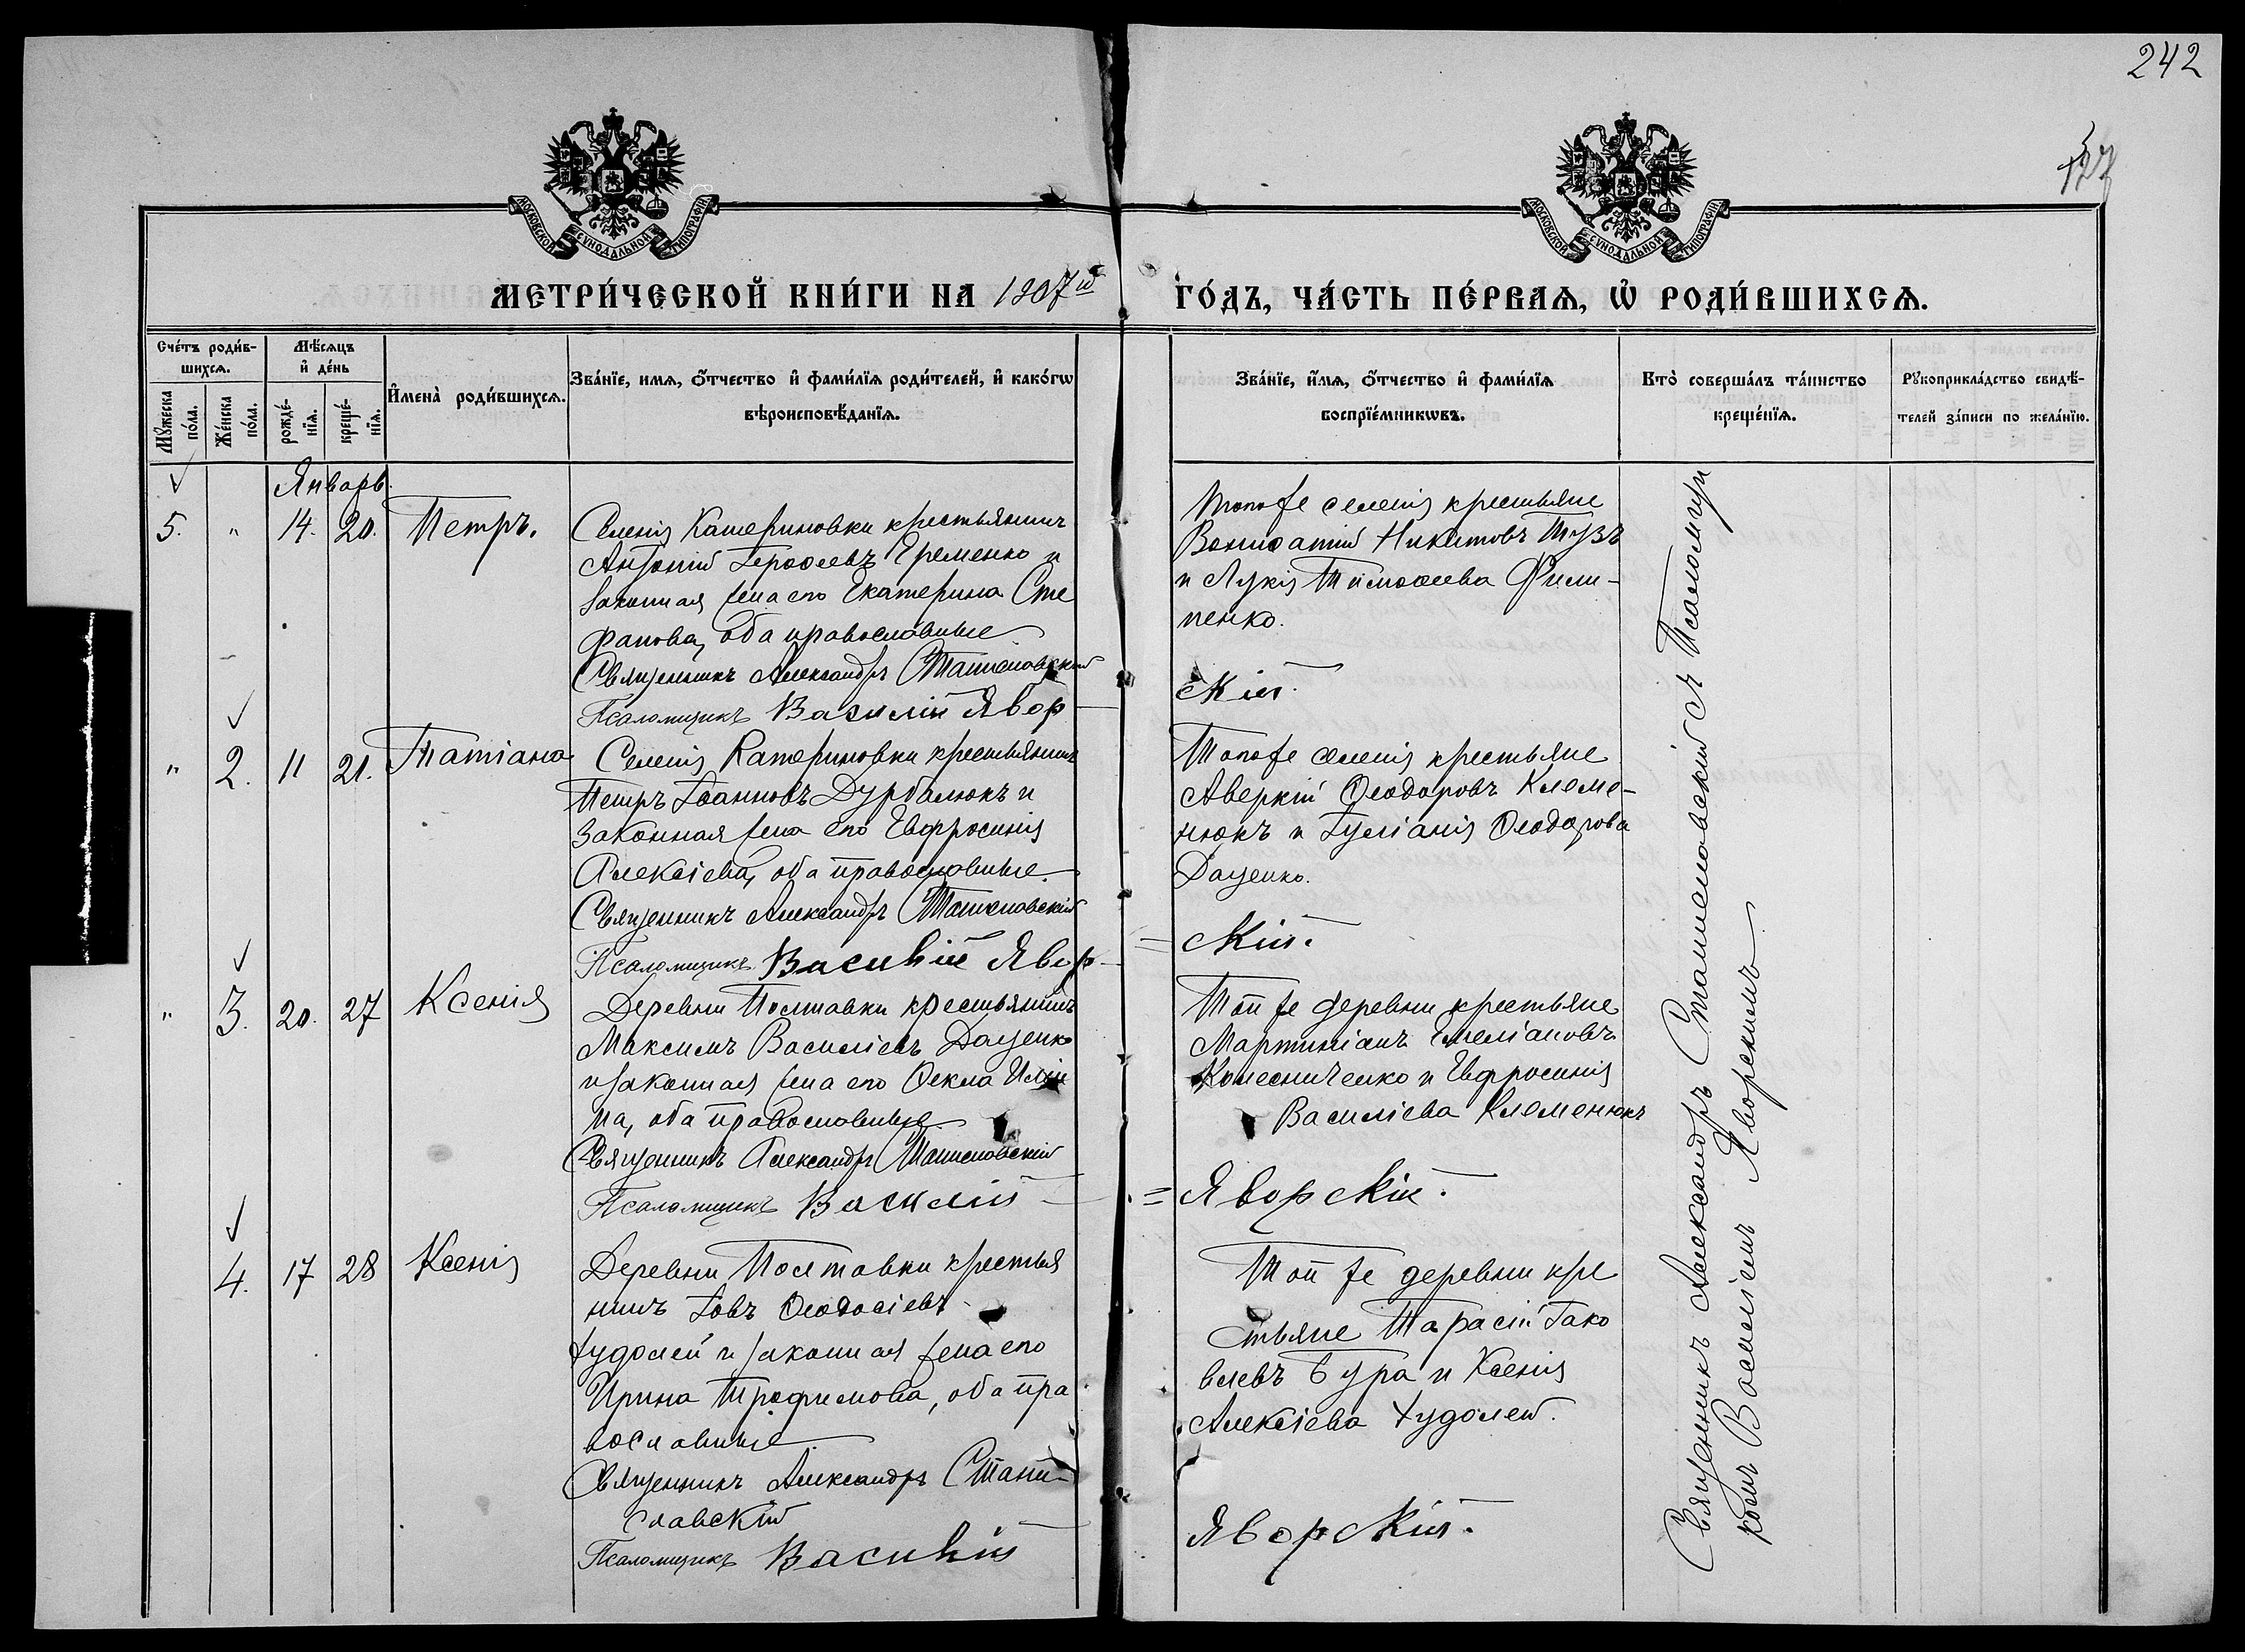 242
127
МОСКОВСКОЙ СУНОДАЛЬНОЙ ТИПОГРАФІИ
МОСКОВСКОЙ СУНОДАЛЬНОЙ ТИПОГРАФІИ
МЕТРИ́ЧЕСКОЙ КНИ́ГИ НА 1907й
ГО́ДЪ, ЧА́СТЬ ПЕ́РВАѦ, Ѡ҆ РОДИ́ВШИХСѦ.
Сче́тъ роди́в-
шихсѧ.
Мѣ́сѧцъ
и҆ де́нь
Мꙋ́жеска по́ла.
Же́нска по́ла.
рожде́-нїѧ.
креще́-нїѧ.
И҆мена̀ роди́вшихсѧ.
Зва́нїе, имѧ, ѻ҆́тчество и҆ фами́лїѧ роди́телей, и҆ како́гѡ
вѣроисповѣ́данїѧ.
Зва́нїе, и҆́мѧ, ѻ҆́тчество и҆ фами́лїѧ
воспрїе́мникѡвъ.
Кто̀ соверша́лъ та́инство
креще́нїѧ.
Рꙋкоприкла́дство свидѣ́-
телей за́писи по жела́нїю.
Январь.
5. " 14. 20. Петръ.
Селенія Катериновки крестьянинъ
Антоній Ерофеевъ Еременко и
законная жена его Екатерина Сте
фанова, оба православные
Священникъ Александръ Станиславскій
Псаломщикъ Василій Явор
Того же селенія крестьяне
Вонифатій Никитовъ Тузъ
и Лукія Тимофеева Фили-
пенко.
скій.
" 2. 11 21. Татіана
Селенія Катериновки крестьянинъ
Петръ Іоанновъ Дурбалюкъ и
законная жена его Евфросинія
Алексіева, оба православные.
Священникъ Александръ Станиславскій
Псаломщикъ Василій Явор-
Того же селенія крестьяне
Аверкій Ѳеодоровъ Клеме-
нюкъ и Іуліанія Ѳеодорова
Даценко.
скій.
" 3. 20. 27 Ксенія
Деревни Полтавки крестьянинъ
Максимъ Василіевъ Даценко
и законная жена его Ѳекла
на, оба православные
Священникъ Александръ Станиславскій
Псаломщикъ Василій
Той же деревни крестьяне
Мартиніанъ Емеліановъ
Колесниченко и Евфросинія
Василіева Клеменюкъ
= Яворскій.
4. 17 28 Ксенія
Деревни Полтавки крестья
нинъ Іовъ Ѳеодосіевъ
Худолей и законная жена его
Ирина Трофимова, оба пра
вославные.
Священникъ Александръ Стани-
славскій
Псаломщикъ Василій
Той же деревни кре
стьяне Тарасій Іако
влевъ Бура и Ксенія
Алексіева Худолей.
Яворскій.
Священникъ Александръ Станиславскій съ Псаломщи
комъ Василіемъ Яворскимъ